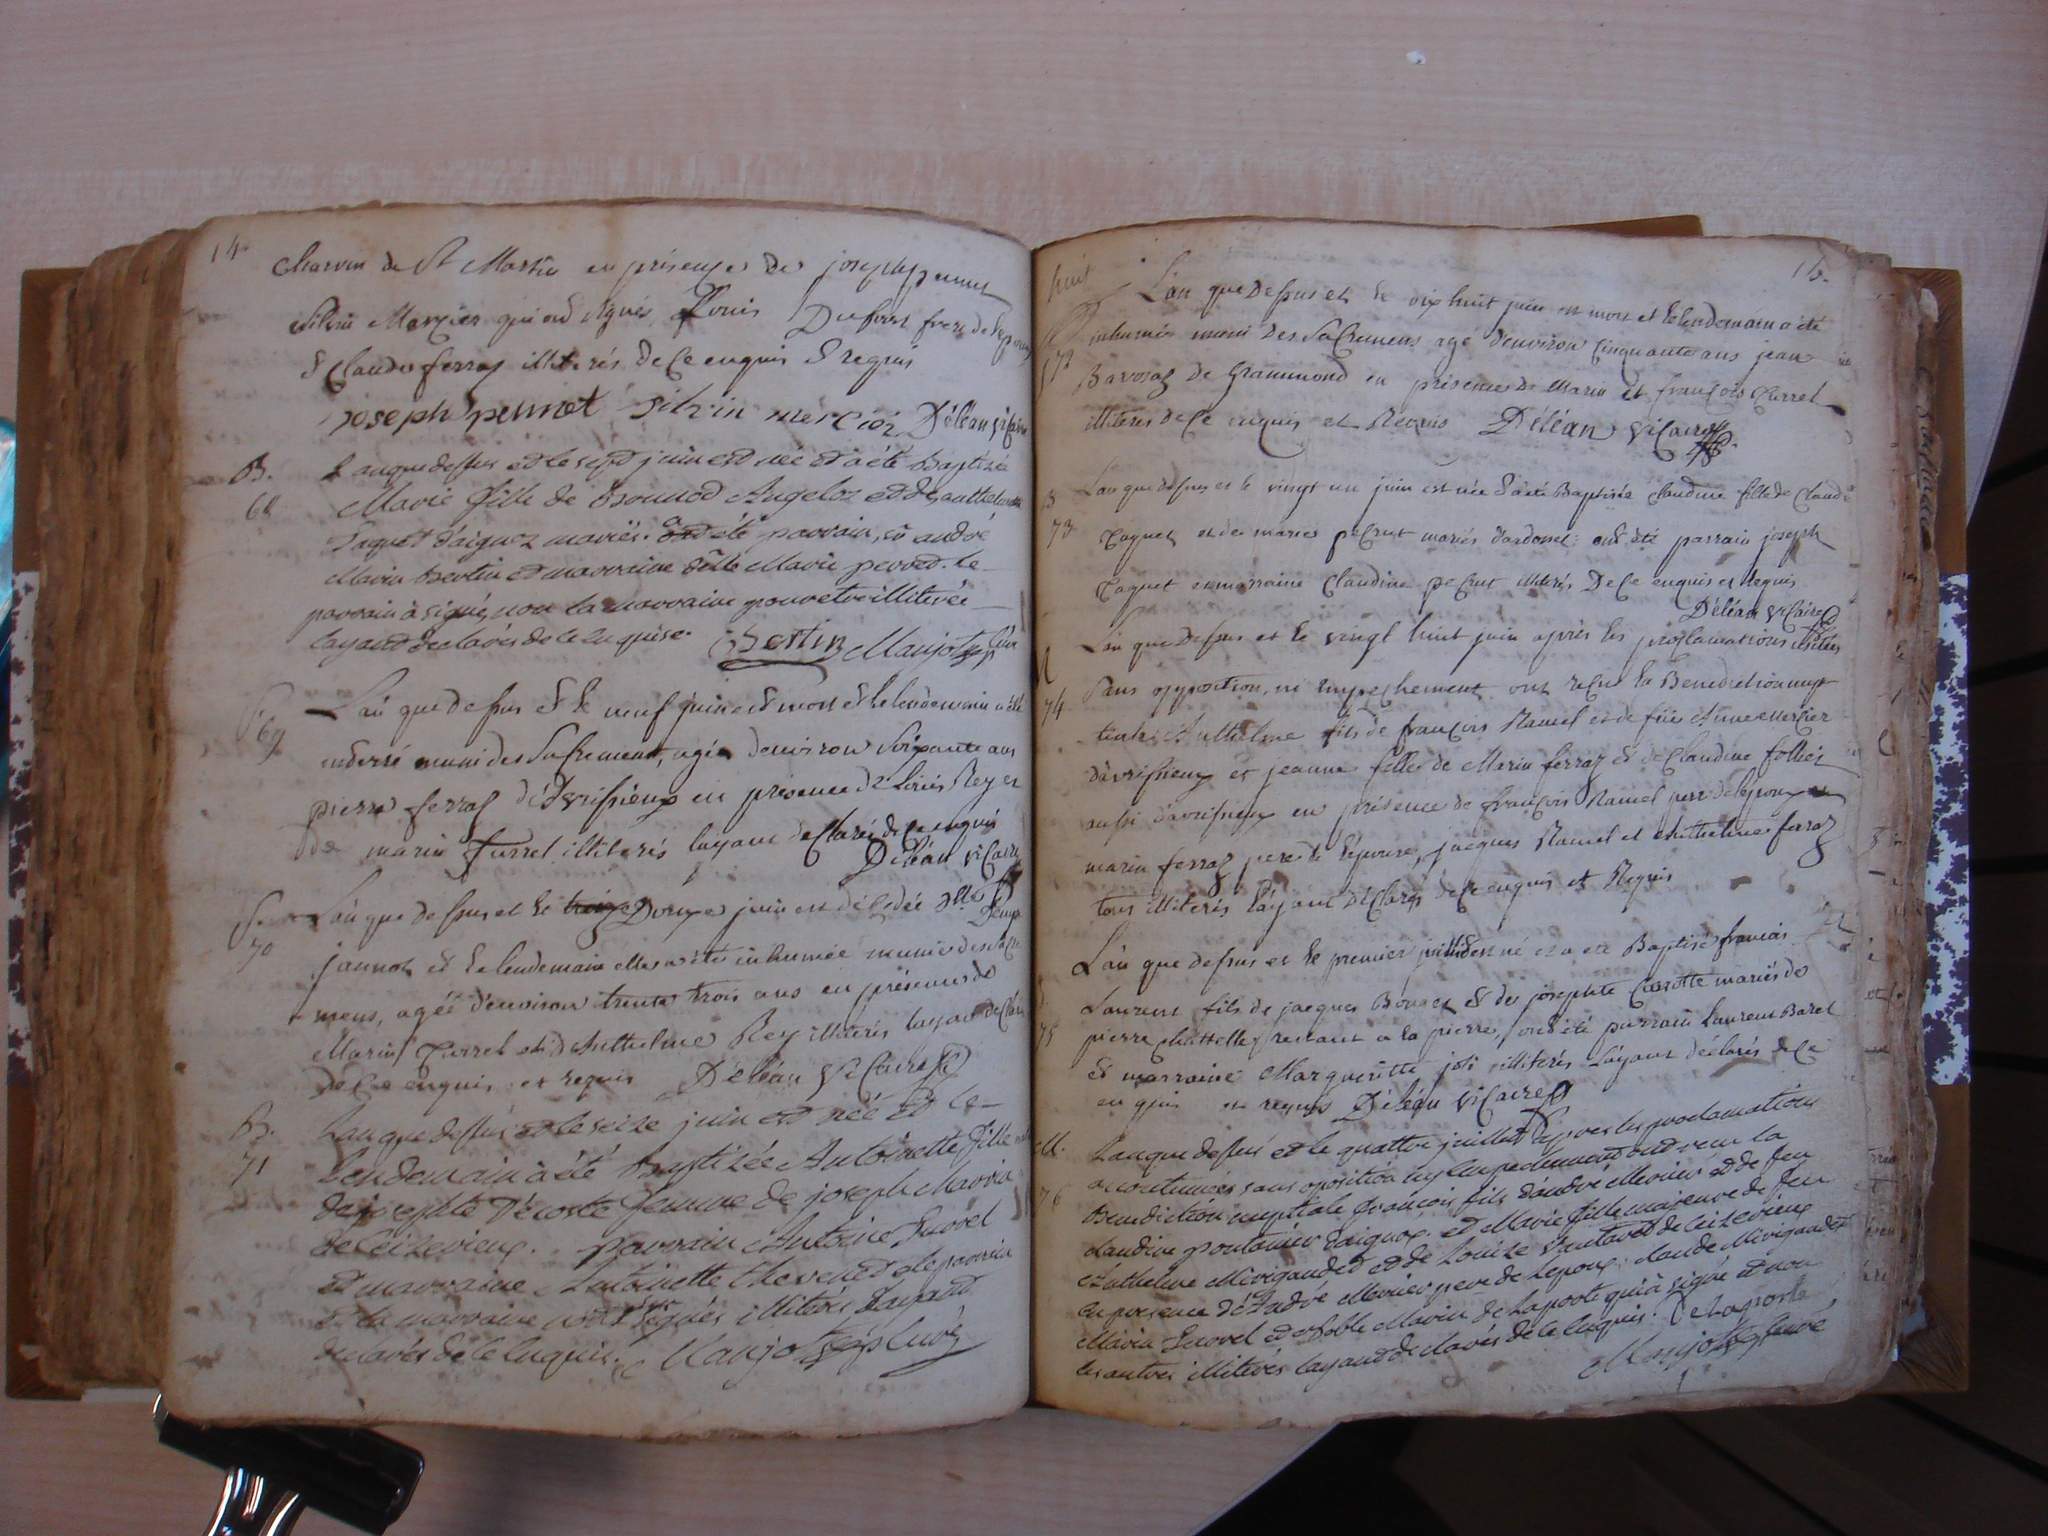 14.
Charvin de St Martin en présence de joseph pennet
silvin Mercier qui ont signés, Louis Dufour frere de l'epoux
& Claude ferraz illiterés de ce enquis & requis
joseph pennet silvin mercier Déléan vicaire
B.
68
L'an que dessus et le sept juin est née et a été Baptisée
Marie fille de Bonnod Angeloz et d'anthelmette
Taquet d'aiguez mariés. ont été parrain, sr andré
Marin Bertin et marraine Marie perrod. le
parrain à signé, non la marraine pour etre illiterée
layant declarés de ce enquise. Bertin Manjot curé
S.
69
L'an que dessus & le neuf juin est mort & le lendemain a été
enterré muni des Sacremens, agé d'environ soixante ans
pierre ferraz d'avrissieux en présence de Louis Rey et
de marin furrel illiterés layant déclarés de ce enquis
Déléan vicaire
S.
70
L'an que dessus et le treize Douze juin est décedée
jannot et le lendemain elle a été inhumée munie des sacre
mens, agée d'environ trente trois ans en présence de
Marin Curret et d'Anthelme Rey illiterés layant déclarés
de ce enquis et requis Déléan vicaire
B.
71
L'an que dessus et le seize juin est née et le
lendemain à été Baptisée Antoinette fille
de josephte Décoste femme de joseph Marin
de Ceizerieux. parrain Antoine Ducrel
et marraine Antoinette thevenet le parrain
et la marraine n'ont signés illiterés Layant
declarés de ce enquis. Manjot curé
15.
huit
S
72
L'an que dessus et le dix huit juin est mort et le lendemain a été
inhumé muni des Sacremens agé d'environ cinquante ans jean
Bavoraz de Grammond en présence de Marin et françois Curret
illiteres de ce enquis et Requis Déléan vicaire
B
73
L'an que dessus et le vingt un juin est née & a été Baptisée Claudine fille de Claude
Taquet et de marie pecrut mariés d'ardosset: ont été parrain joseph
Taquet et marraine Claudine pecrut illiterés de ce enquis et requis
Déléan vicaire
M
74
L'an que dessus et le vingt huit juin après les proclamations usitées
sans opposition, ni empechement ont reçu la Benediction nup
tiale Anthelme fils de françois Ramel et de fûe Anne mercier
d'avrissieux et jeanne fille de Marin ferraz & de Claudine follier
aussi d'avrissieux en présence de françois Ramel pere de lepoux
marin ferraz pere de l'epouse, jacques Ramel et Anthelme ferraz
tous illiterés l'ayant déclarés de ce enquis et Requis
75
L'an que dessus et le premier juillet est né et a été Baptisé francois
Laurent fils de jacques Bonaez & de josephte Carrotte mariés de
pierre chattelle restant a la pierre, ont été parrain Laurent Barel
& marraine Marguerite joli illiterés l'ayant déclarés de ce
enquis et requis Déléan vicaire
M.
76
L'an que dessus et le quattre juillet apres les proclamations
accoutumées sans oposition ny empechement ont reçu la
Benediction nuptiale françois fils d'andré Mercier et de feu
claudine d'aiguoz. et Marie fille majeure de feu
Anthelme Mirigaudet et de Louize Vautaret de Ceizerieux
en presence d'André Mercier pere de Lepoux, claude Mirigaudet
Marin Ducrel et noble Marin de Laporte qui à signé et non
les autres illiterés layant declarés de ce enquis. Delaporte
Manjot curé